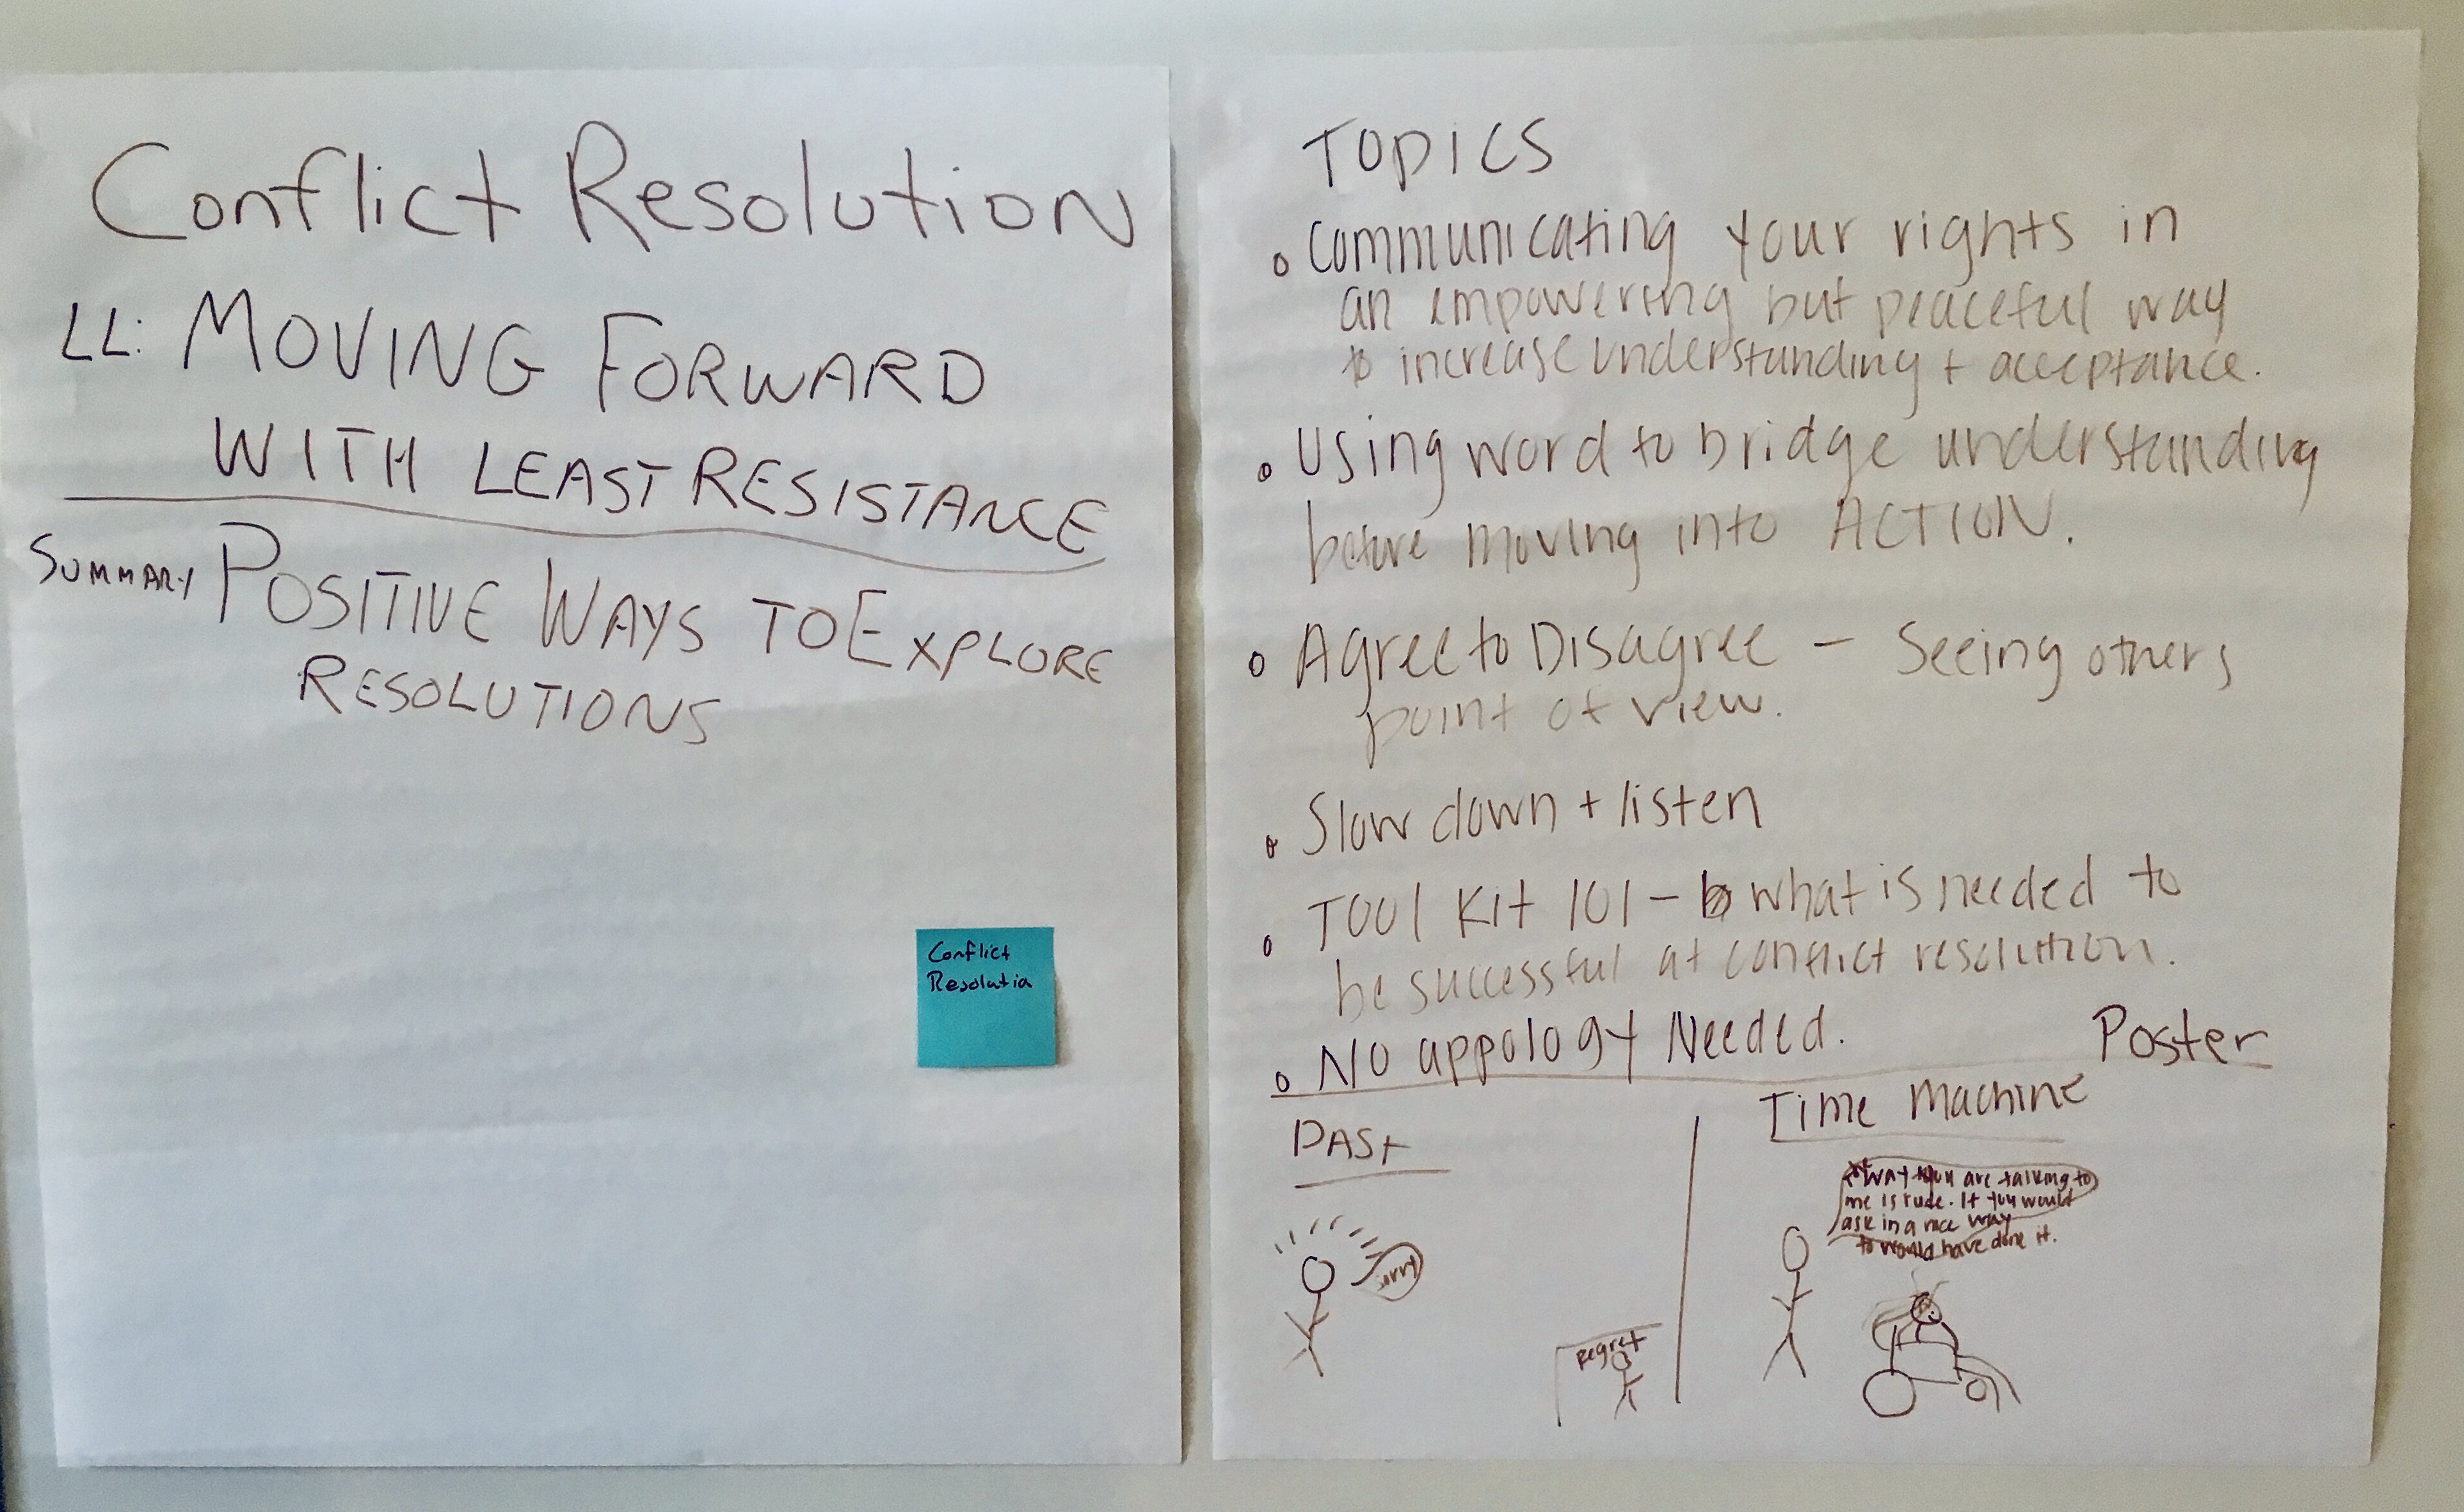 Conflict Resolution
LL: MOVING FORWARD
WITH LEAST RESISTANCE
SUMMARY POSITIVE WAYS TO EXPLORE
RESOLUTIONS
Conflict
Resolutio
TOPICS
Communicating your rights in
an empowering but peaceful way
to increase understanding + acceptance.
Using word to bridge understanding
before moving into ACTION.
Agree to Disagree - Seeing others
point of view.
Slow down + listen
TOOl Kit 101 - what is needed to
be successful at conflict resolution.
No appology Needed.
Poster
PAST
Time Machine
sorry
Regret
way you are talking to
me is rude. If you would
ask in a nice way
would have done it.